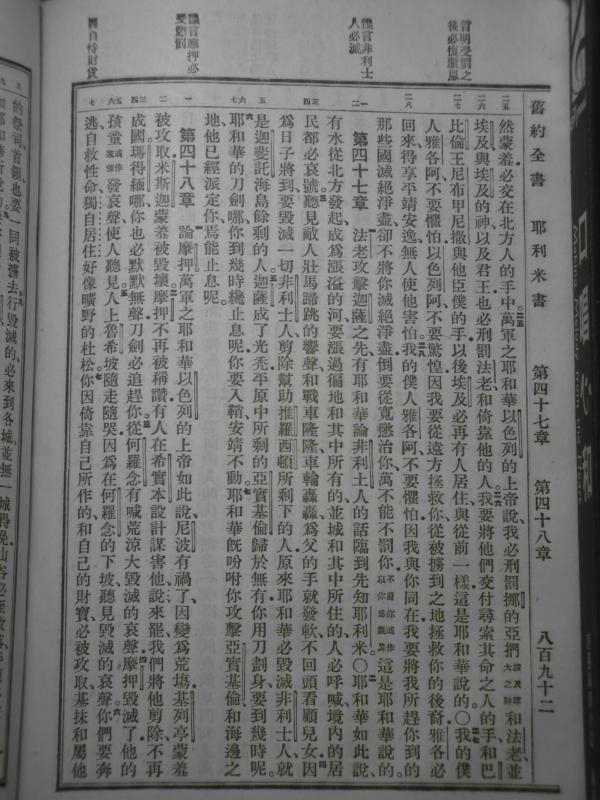 舊約全書　耶利米書　第四十七章　第四十八章　八百九十二
言明受罰之後必復蒙恩
預言非利士人必滅
預言摩押必受懲罰
因自恃財貨
二五 然蒙羞必交在北方人的手中萬軍之耶和華以色列的上帝說我必刑罰挪的亞捫 和法老並
二六 埃及與埃及的神以及君王也必刑罰法老和倚靠他的人我要將他們交付尋索其命之人的手和巴
二七 比倫王尼布甲尼撒與他臣僕的手以後埃及必再有人居住與從前一樣這是耶和華說的〇我的僕
人雅各阿不要懼怕以色列阿不要驚惶因我要從遠方拯救你從被擄到之地拯救你的後裔雅各必
二八 回來得享平靖安逸無人使他害怕我的僕人雅各阿不要懼怕因我與你同在我要將我所趕你到的
那些國滅絕淨盡卻不將你滅絕淨盡倒要從寬懲治你萬不能不罰你 這是耶和華說的
一 第四十七章　法老攻擊迦薩之先有耶和華論非利士人的話臨到先知耶利米〇耶和華如此說
有水從北方發起成為漲溢的河要漲過徧地和其中所有的並城和其中所住的人必呼喊境內的居
三 民都必哀號聽見敵人壯馬蹄跳的響聲和戰車隆隆車輪轟轟為父的手就發軟不回頭看顧兒女因
為日子將到要毀滅一切非利士人剪除幫助推羅西頓所剩下的人原來耶和華必毀滅非利士人就
五 是迦斐託海島餘剩的人迦薩成了光禿平原中所剩的亞實基倫歸於無有你用刀劃身要到幾時呢
六七 耶和華的刀劍哪你到幾時纔止息呢你要入鞘安靖不動耶和華既吩咐你攻擊亞實基倫和海邊之
地他已經派定你焉能止息呢
一 第四十八章　論摩押萬軍之耶和華以色列的上帝如此說尼波有禍了因變為荒塲基列亭蒙羞
二 被攻取米斯迦蒙羞被毀壞摩押不再被稱讚有人在希實本設計謀害他說來罷我們將他剪除不再
三四 成國瑪得緬哪你也必默默無聲刀劍必追趕你從何羅念有喊荒涼大毀滅的哀聲摩押毀滅了他的
五六 孩童 發哀聲使人聽見人上魯希坡隨走隨哭因為在何羅念的下坡聽見毀滅的哀聲你們要奔
七 逃自救性命獨自居住好像曠野的杜松你因倚靠自己所作的和自己的財寶必被攻取基抹和屬他
的祭司首領也要一同被擄去行毀滅的必來到各城並無一城得免山谷必至